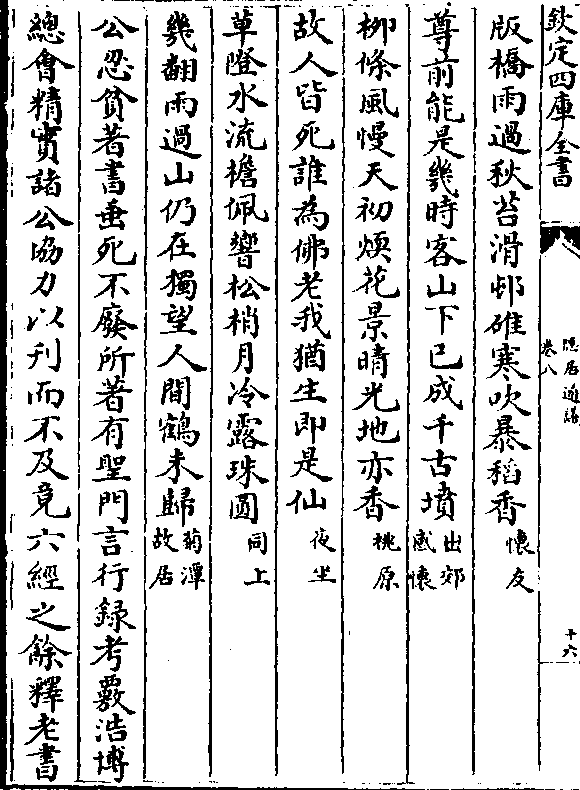 欽定四庫全書
隱居通議
卷八
十六
版橋雨過秋苔滑邨碓寒吹暴稻香懷友
尊前能是幾時客山下已成千古墳出郊感懷
柳條風慢天初煗花景晴光地亦香桃原
故人皆死誰為佛老我猶生即是仙夜坐
草隥水流檐佩響松梢月冷露珠圓同上
幾翻雨過山仍在獨望人間鶴未歸菊潭故居
公忍貧著書垂死不廢所著有聖門言行録考覈浩博
總會精實諸公協力以刋而不及竟六經之餘釋老書